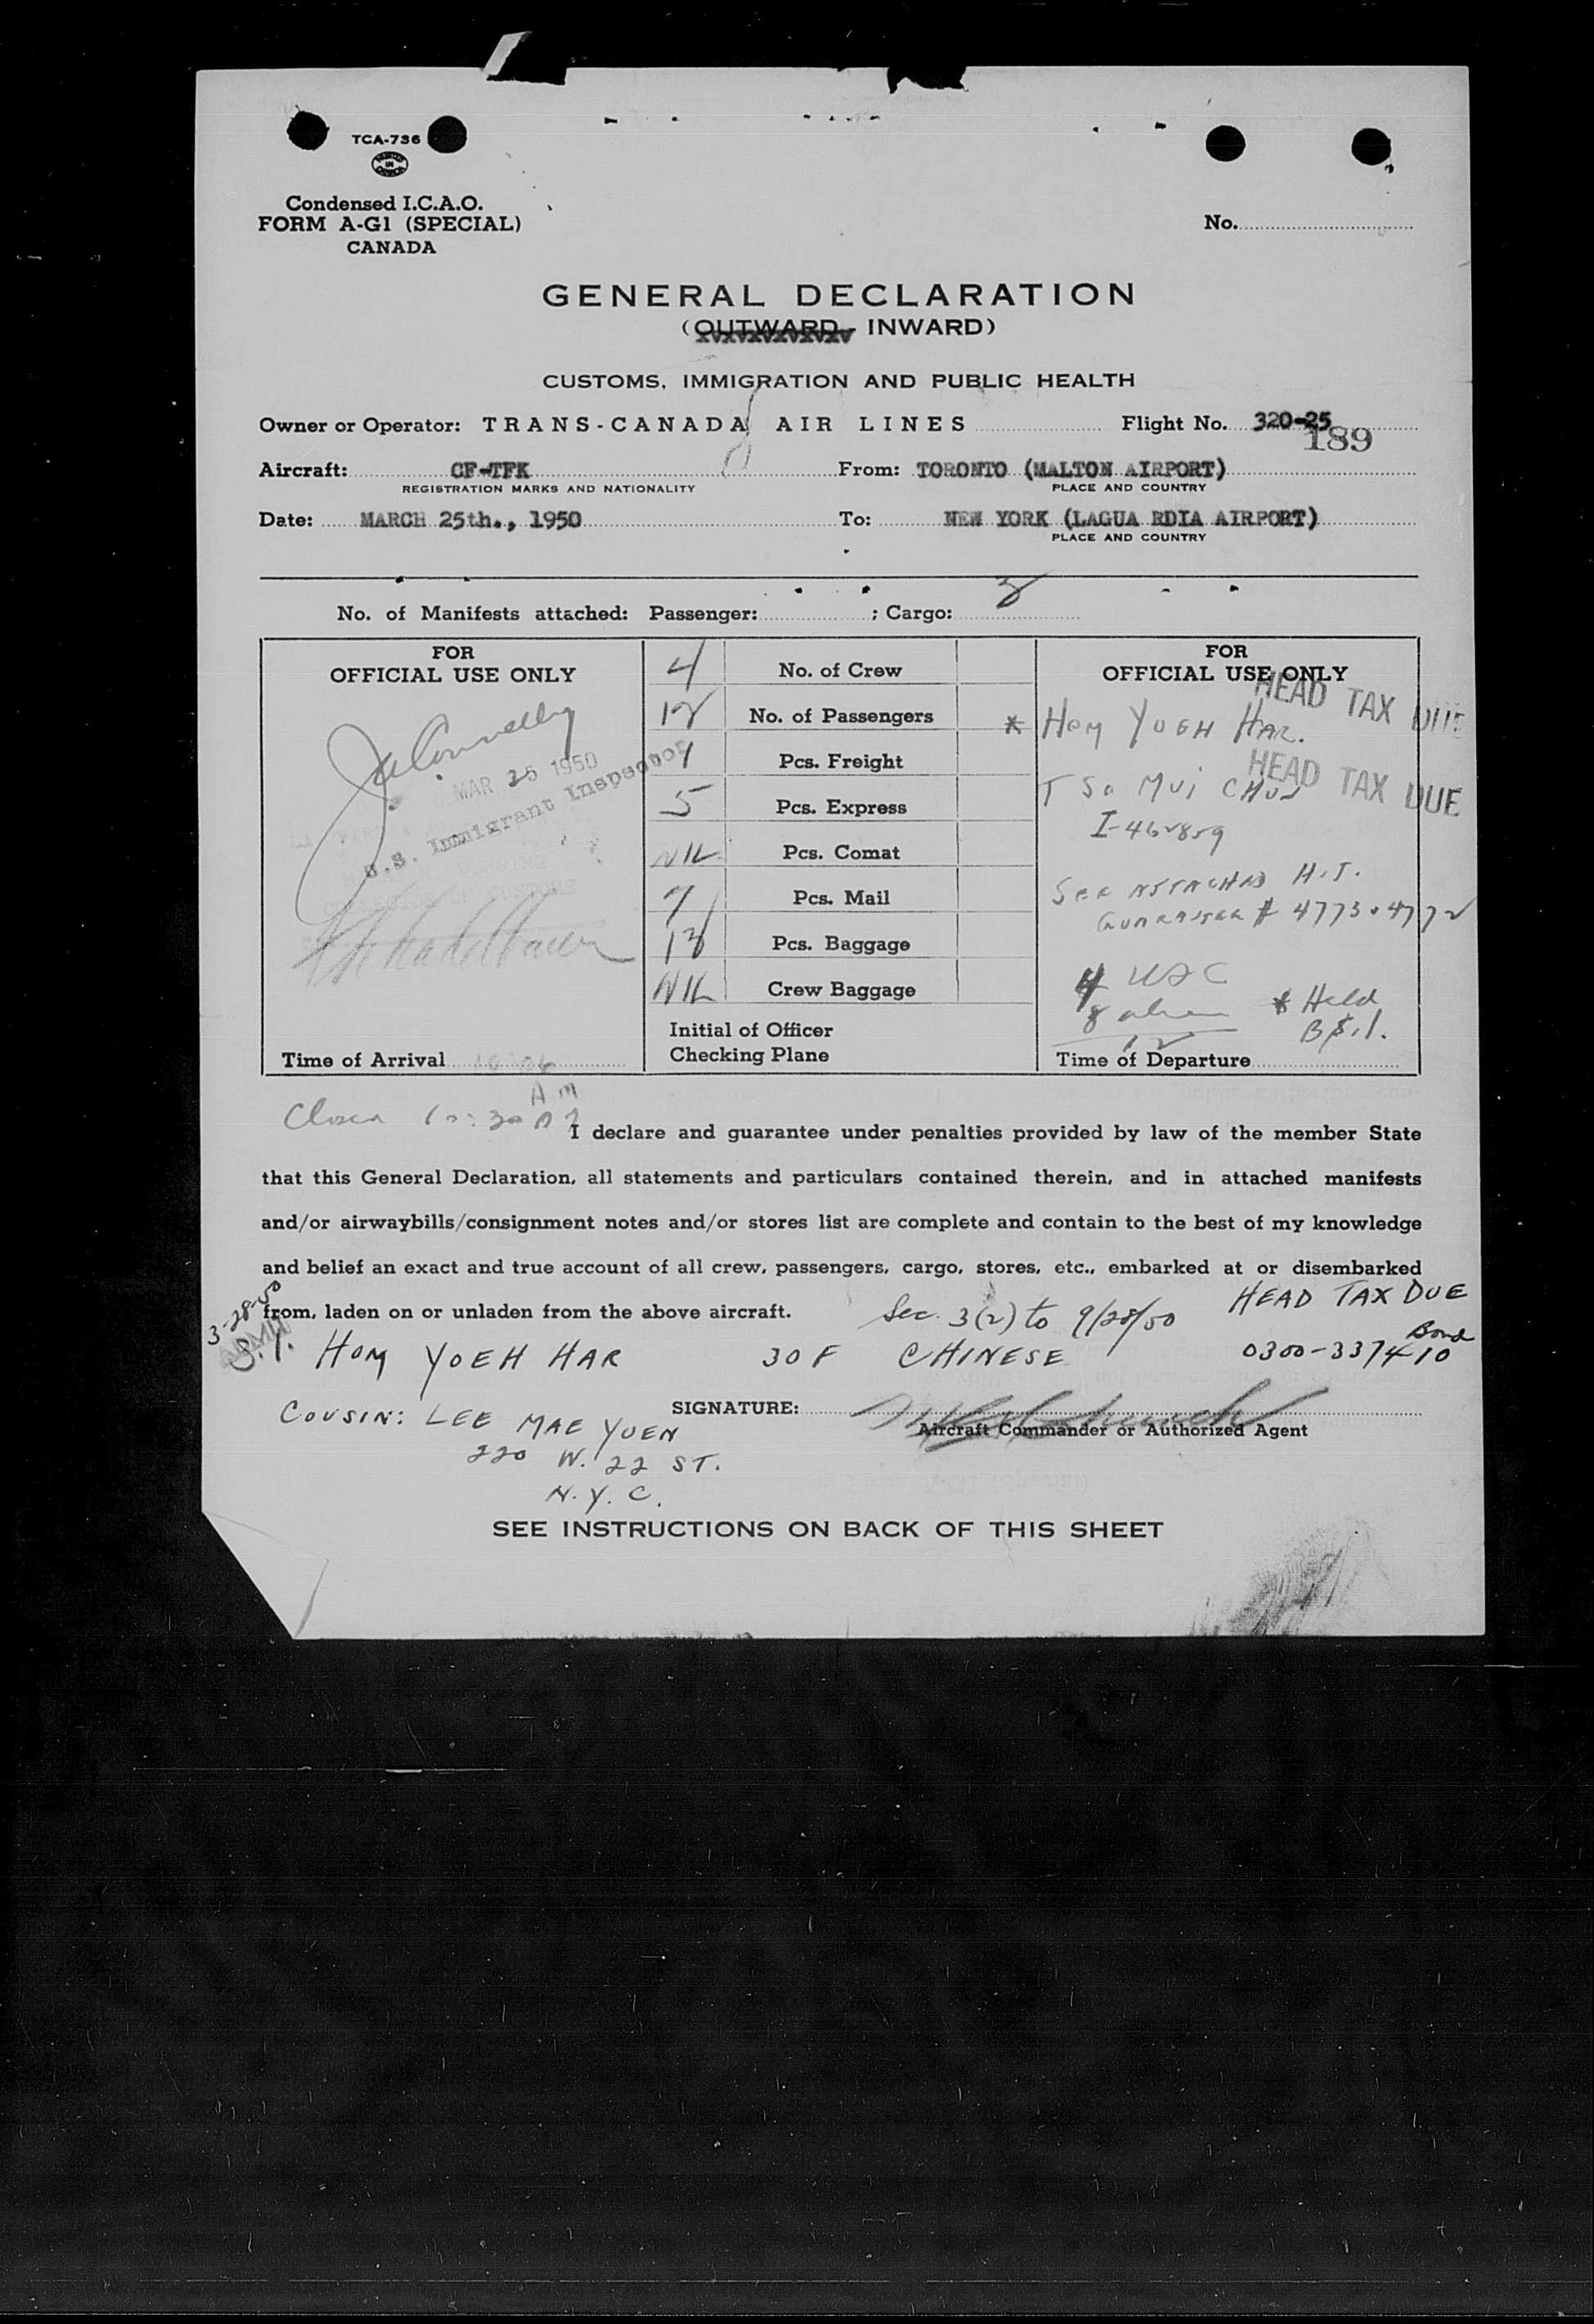 TCA-736
PRINTED IN CANADA
Condensed I.C.A.O.
FORM A-G1 (SPECIAL)
CANADA
No.
GENERAL DECLARATION
(OUTWARD - INWARD)
CUSTOMS, IMMIGRATION AND PUBLIC HEALTH
Owner or Operator: TRANS-CANADA AIR LINES Flight No. 320-25
189
Aircraft: CF-TFK From: TORONTO (MALTON AIRPORT)
REGISTRATION MARKS AND NATIONALITY PLACE AND COUNTRY
Date: MARCH 25th., 1950 To: NEW YORK (LAGUA RDIA AIRPORT)
PLACE AND COUNTRY
No. of Manifests attached: Passenger: ; Cargo:
FOR
OFFICIAL USE ONLY
J. Connelly
MAR 25 1950
U.S. Immigrant Inspector
Time of Arrival
AM
4 No. of Crew
12 No. of Passengers
Pcs. Freight
5 Pcs. Express
NIL Pcs. Comat
7 Pcs. Mail
Pcs. Baggage
NIL Crew Baggage
Initial of Officer
Checking Plane
FOR
OFFICIAL USE ONLY
HEAD TAX DUE
* HOM YOEH HAR.
HEAD TAX DUE
TSO MUI CHUN
I-462859
SEE ATTACHED H.T.
GUARANTEE # 4773 + 4772
4 USC
8 alien * Held
12 B.S.I.
Time of Departure
Closed 10:30 AM
I declare and guarantee under penalties provided by law of the member State
that this General Declaration, all statements and particulars contained therein, and in attached manifests
and/or airwaybills/consignment notes and/or stores list are complete and contain to the best of my knowledge
and belief an exact and true account of all crew, passengers, cargo, stores, etc., embarked at or disembarked
from, laden on or unladen from the above aircraft.
Sec. 3(2) to 9/28/50 HEAD TAX DUE
3-28-50
S.I. HOM YOEH HAR 30 F CHINESE 0300-337410 Bond
COUSIN: LEE MAE YUEN
220 W. 22 ST.
N.Y.C.
SIGNATURE:
Aircraft Commander or Authorized Agent
SEE INSTRUCTIONS ON BACK OF THIS SHEET